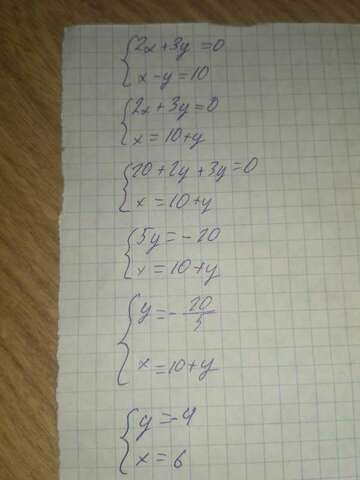 2x+3y=0
x-y=10
2x+3y=0
x=10+y
20+2y+3y=0
x=10+y
5y=-20
x=10+y
y=-20/5
x=10+y
y=-4
x=6